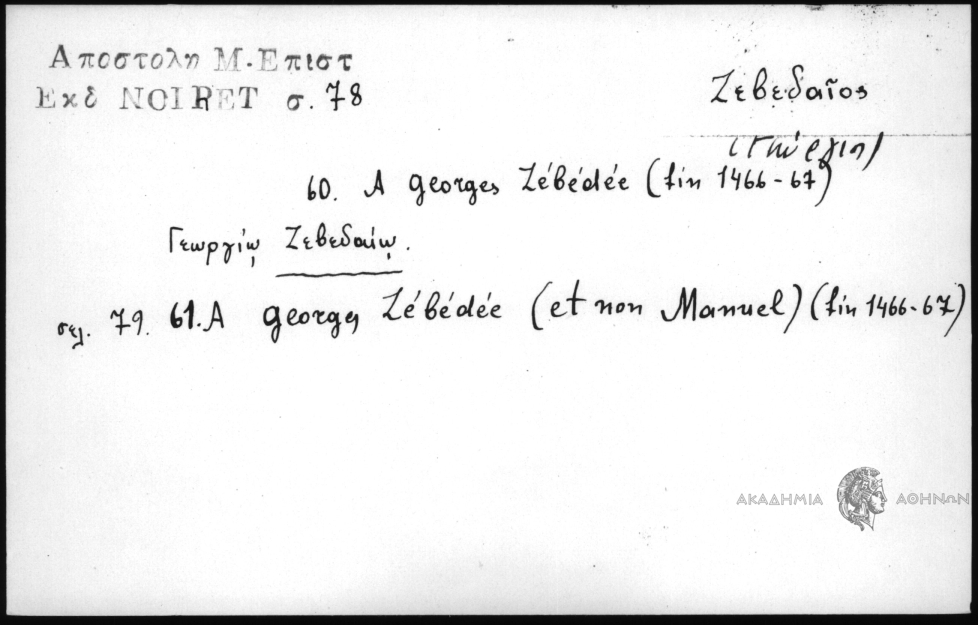 Αποστολη Μ. Επιστ
Εκδ NOIRET σ. 78
Ζεβεδαῖος
60. A Georges Zébédée (fin 1466-67)
Γεωργίῳ Ζεβεδαίῳ.
σελ. 79. 61. A Georges Zébédée (et non Manuel) (fin 1466-67)
ΑΚΑΔΗΜΙΑ ΑΘΗΝΩΝ